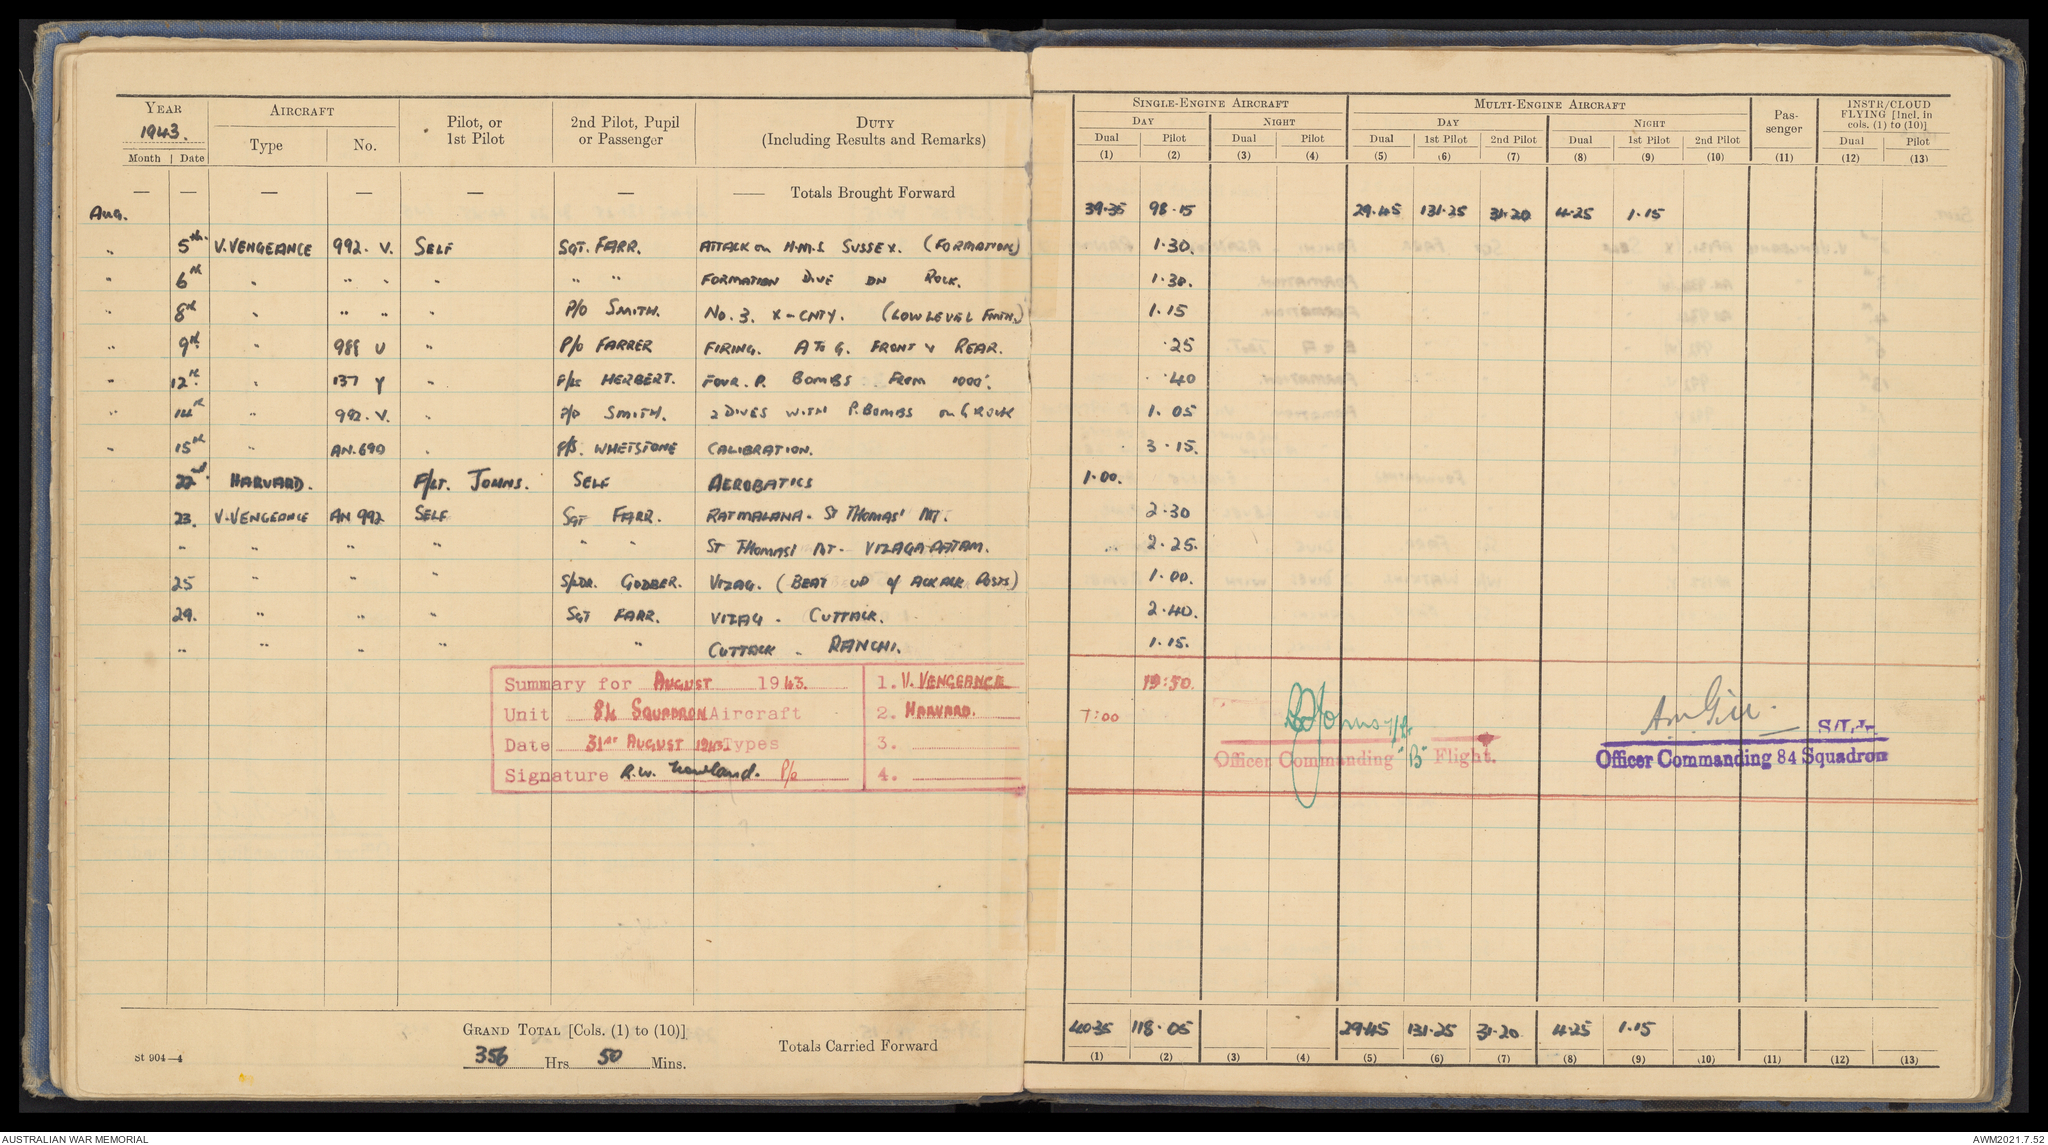 YEAR AIRCRAFT Pilot, or 1st Pilot 2nd Pilot, Pupil or Passenger DUTY (Including Results and Remarks) SINGLE-ENGINE AIRCRAFT MULTI-ENGINE AIRCRAFT Pas-senger INSTR/CLOUD FLYING [Incl. in cols. (1) to (10)]
1943. Type No. DAY NIGHT DAY NIGHT
Month Date Dual Pilot Dual Pilot Dual 1st Pilot 2nd Pilot Dual 1st Pilot 2nd Pilot Dual Pilot
(1) (2) (3) (4) (5) (6) (7) (8) (9) (10) (11) (12) (13)
— — — — — — —— Totals Brought Forward
Aug. 39.35 98.15 29.45 131.25 31.20 4.25 1.15
" 5th V.VENGEANCE 992. V. SELF SGT. FARR. ATTACK on H.M.S SUSSEX. (FORMATION) 1.30.
" 6th " " " " " " FORMATION DIVE ON ROCK. 1.30.
" 8th " " " " P/O SMITH. No. 3. X-CNTY. (LOW LEVEL FMTN.) 1.15
" 9th " 989 U " P/O FARRER FIRING. A TO G. FRONT & REAR. .25
" 12th " 137 Y " F/LT HERBERT. FOUR. P. BOMBS FROM 1000'. .40
" 14th " 992. V. " P/O SMITH. 2 DIVES WITH P. BOMBS on G ROCK 1.05
" 15th " AN.690 " F/S. WHETSTONE CALIBRATION. 3.15.
22nd HARVARD. F/LT. JOHNS. SELF AEROBATICS 1.00.
23. V.VENGEANCE AN 992 SELF SGT FARR. RATMALANA - ST THOMAS' MT. 2.30
" " " " " " ST THOMAS' MT - VIZAGAPATAM. 2.25.
25 " " " S/LDR. GODBER. VIZAG. (BEAT UP of ACK ACK POSTS) 1.00.
29. " " " SGT FARR. VIZAG - CUTTACK. 2.40.
" " " " " CUTTACK - RANCHI. 1.15.
Summary for AUGUST 1943. 1. V. VENGEANCE 19:50.
Unit 84 SQUADRON Aircraft 2. HARVARD. 1:00
Date 31ST AUGUST 1943 Types 3. S/Ldr
Signature R.W. Newland. P/o 4. Officer Commanding "B" Flight. Officer Commanding 84 Squadron
GRAND TOTAL [Cols. (1) to (10)] 40.35 118.05 29.45 131.25 31.20 4.25 1.15
356 Hrs 50 Mins. Totals Carried Forward
St 904—4 (1) (2) (3) (4) (5) (6) (7) (8) (9) (10) (11) (12) (13)
AUSTRALIAN WAR MEMORIAL AWM2021.7.52